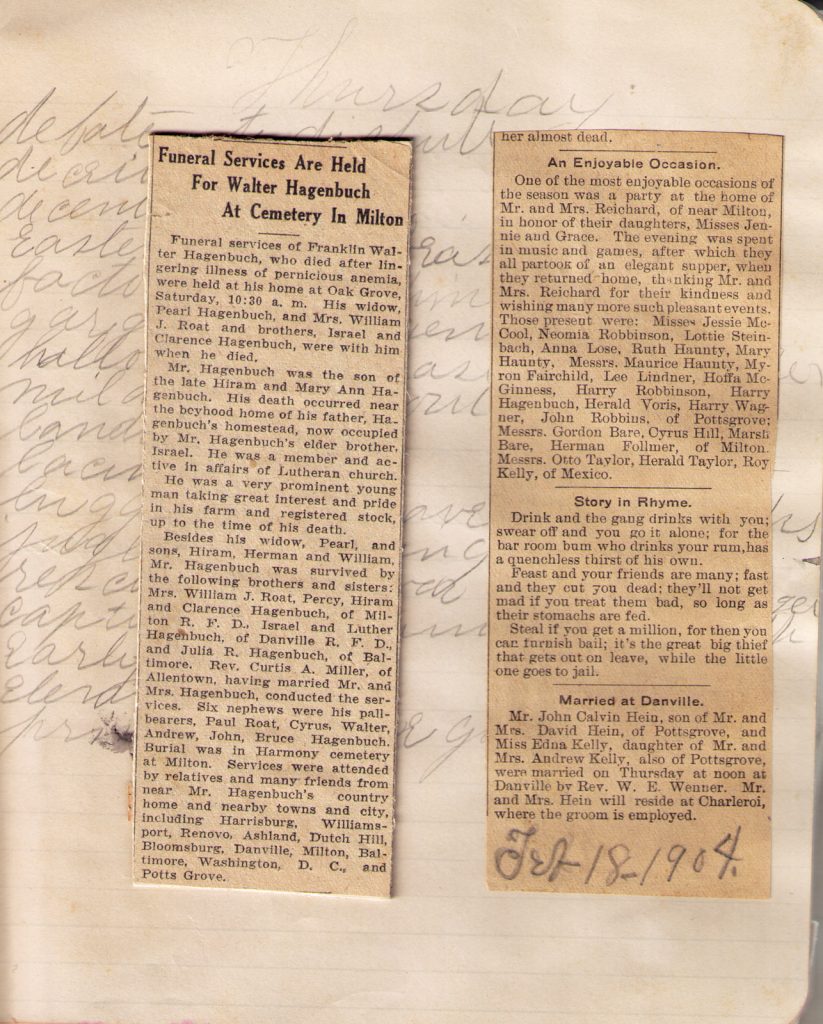 Thursday
Funeral Services Are Held
For Walter Hagenbuch
At Cemetery In Milton
Funeral services of Franklin Wal-
ter Hagenbuch, who died after lin-
gering illness of pernicious anemia,
were held at his home at Oak Grove,
Saturday, 10:30 a. m. His widow,
Pearl Hagenbuch, and Mrs. William
J. Roat and brothers, Israel and
Clarence Hagenbuch, were with him
when he died.
Mr. Hagenbuch was the son of
the late Hiram and Mary Ann Ha-
genbuch. His death occurred near
the boyhood home of his father, Ha-
genbuch's homestead, now occupied
by Mr. Hagenbuch's elder brother,
Israel. He was a member and ac-
tive in affairs of Lutheran church.
He was a very prominent young
man taking great interest and pride
in his farm and registered stock,
up to the time of his death.
Besides his widow, Pearl, and
sons, Hiram, Herman and William,
Mr. Hagenbuch was survived by
the following brothers and sisters:
Mrs. William J. Roat, Percy, Hiram
and Clarence Hagenbuch, of Mil-
ton R. F. D., Israel and Luther
Hagenbuch, of Danville R. F. D.,
and Julia R. Hagenbuch, of Bal-
timore. Rev. Curtis A. Miller, of
Allentown, having married Mr. and
Mrs. Hagenbuch, conducted the ser-
vices. Six nephews were his pall-
bearers, Paul Roat, Cyrus, Walter,
Andrew, John, Bruce Hagenbuch.
Burial was in Harmony cemetery
at Milton. Services were attended
by relatives and many friends from
near Mr. Hagenbuch's country
home and nearby towns and city,
including Harrisburg, Williams-
port, Renovo, Ashland, Dutch Hill,
Bloomsburg, Danville, Milton, Bal-
timore, Washington, D. C., and
Potts Grove.
her almost dead.
An Enjoyable Occasion.
One of the most enjoyable occasions of
the season was a party at the home of
Mr. and Mrs. Reichard, of near Milton,
in honor of their daughters, Misses Jen-
nie and Grace. The evening was spent
in music and games, after which they
all partook of an elegant supper, when
they returned home, thanking Mr. and
Mrs. Reichard for their kindness and
wishing many more such pleasant events.
Those present were: Misses Jessie Mc-
Cool, Neomia Robbinson, Lottie Stein-
bach, Anna Lose, Ruth Haunty, Mary
Haunty, Messrs. Maurice Haunty, My-
ron Fairchild, Lee Lindner, Hoffa Mc-
Ginness, Harry Robbinson, Harry
Hagenbuch, Herald Voris, Harry Wag-
ner, John Robbins, of Pottsgrove;
Messrs. Gordon Bare, Cyrus Hill, Marsh
Bare, Herman Follmer, of Milton.
Messrs. Otto Taylor, Herald Taylor, Roy
Kelly, of Mexico.
Story in Rhyme.
Drink and the gang drinks with you;
swear off and you go it alone; for the
bar room bum who drinks your rum, has
a quenchless thirst of his own.
Feast and your friends are many; fast
and they cut you dead; they'll not get
mad if you treat them bad, so long as
their stomachs are fed.
Steal if you get a million, for then you
can furnish bail; it's the great big thief
that gets out on leave, while the little
one goes to jail.
Married at Danville.
Mr. John Calvin Hein, son of Mr. and
Mrs. David Hein, of Pottsgrove, and
Miss Edna Kelly, daughter of Mr. and
Mrs. Andrew Kelly, also of Pottsgrove,
were married on Thursday at noon at
Danville by Rev. W. E. Wenner. Mr.
and Mrs. Hein will reside at Charleroi,
where the groom is employed.
Feb-18-1904.